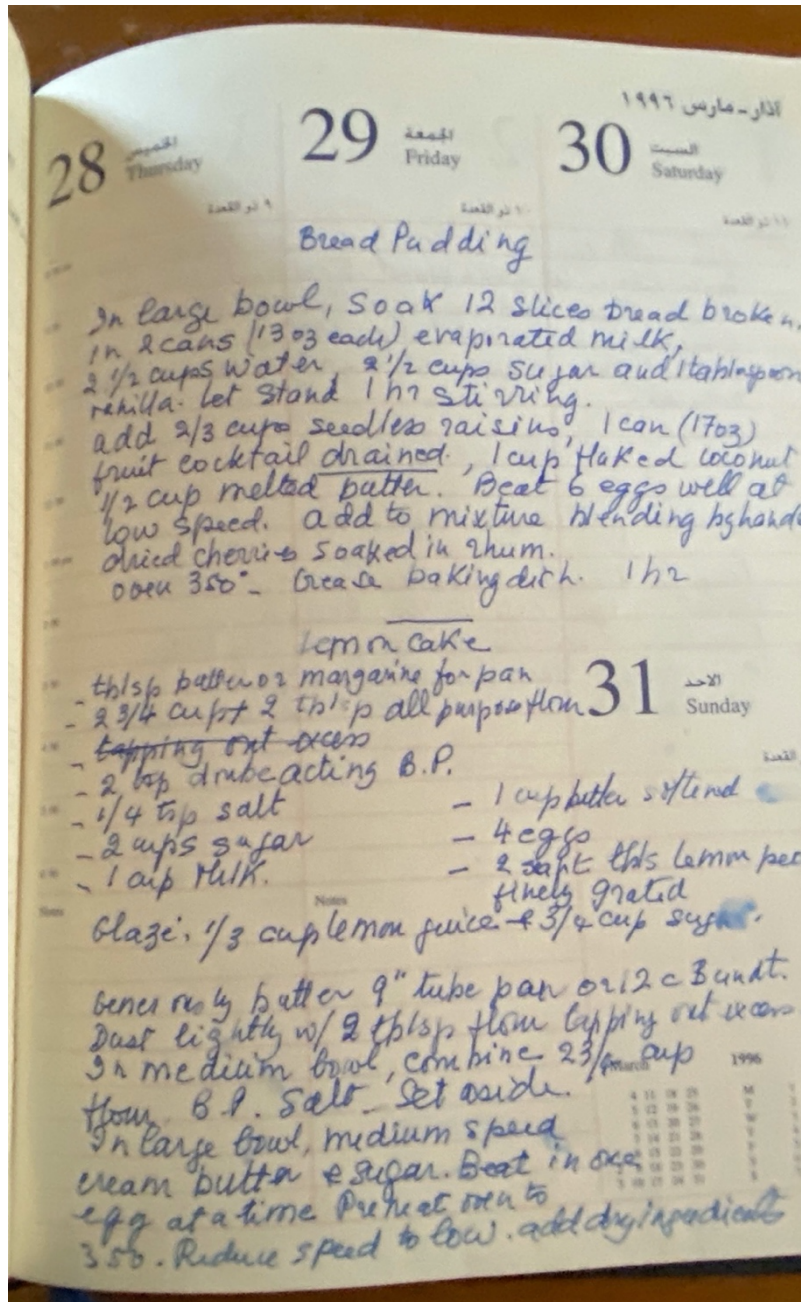 آذار - مارس ١٩٩٦
28 الخميس Thursday
٩ ذو القعدة
29 الجمعة Friday
١٠ ذو القعدة
30 السبت Saturday
١١ ذو القعدة
Bread Pudding
In large bowl, soak 12 slices bread broken,
in 2 cans (13 oz each) evaporated milk,
2 1/2 cups water, 2 1/2 cups sugar and 1 tablespoon
vanilla. Let stand 1 hr stirring.
add 2/3 cups seedless raisins, 1 can (17 oz)
fruit cocktail drained, 1 cup flaked coconut
1/2 cup melted butter. Beat 6 eggs well at
low speed. add to mixture blending by hand
dried cherries soaked in rhum.
oven 350° - Grease baking dish. 1 hr
Lemon Cake
- tblsp butter or margarine for pan
- 2 3/4 cup + 2 tblsp all purpose flour
31 الاحد Sunday
القعدة
- tapping out excess
- 2 tsp double acting B.P.
- 1/4 tsp salt
- 2 cups sugar
- 1 cup Milk.
- 1 cup butter softened
- 4 eggs
- 2 tbls lemon peel
finely grated
Notes
Notes
Glaze: 1/3 cup lemon juice + 3/4 cup sugar.
Generously butter 9" tube pan or 12 c Bundt.
Dust lightly w/ 2 tblsp flour tapping out excess
In medium bowl, combine 2 3/4 cup
flour B.P. Salt - Set aside.
March 1996
In large bowl, medium speed
cream butter & sugar. Beat in one
egg at a time Preheat oven to
350. Reduce speed to low. add dry ingredients